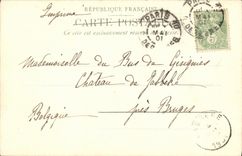 RÉPUBLIQUE FRANÇAISE
Imprimé
CARTE POSTALE
Ce côté est exclusivement réservé
PARIS
MAI
01
Mademoiselle du Bus de Gisignies
Château de Jabbeke
près Bruges
Belgique